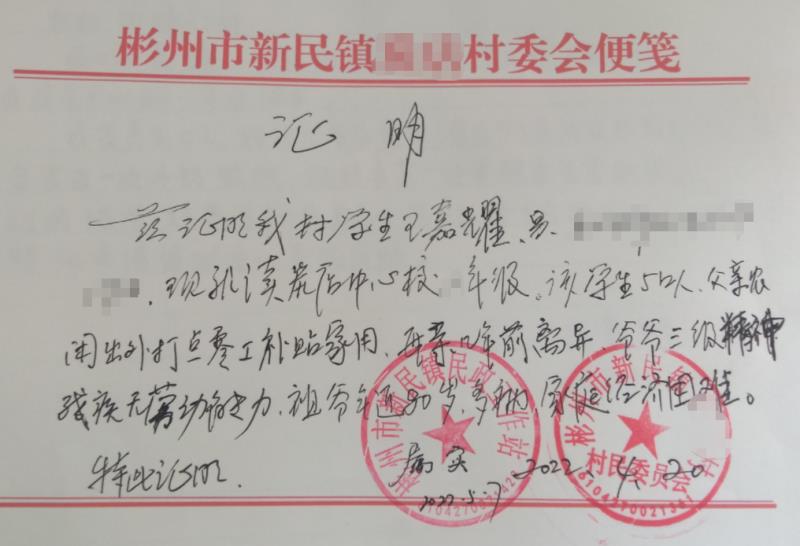 彬州市新民镇村委会便笺
证 明
兹证明我村学生王嘉耀,男,
,现就读 店中心校 年级。该学生5口人,父亲农
闲出外打点零工补贴家用,母亲 年前离异,爷爷三级精神
残疾无劳动能力,祖爷年近90岁,多病,家庭经济困难。
特此证明。
属实
2022.5.7
2022.4.20
彬州市新民镇民政工作站
彬州市新民
村民委员会